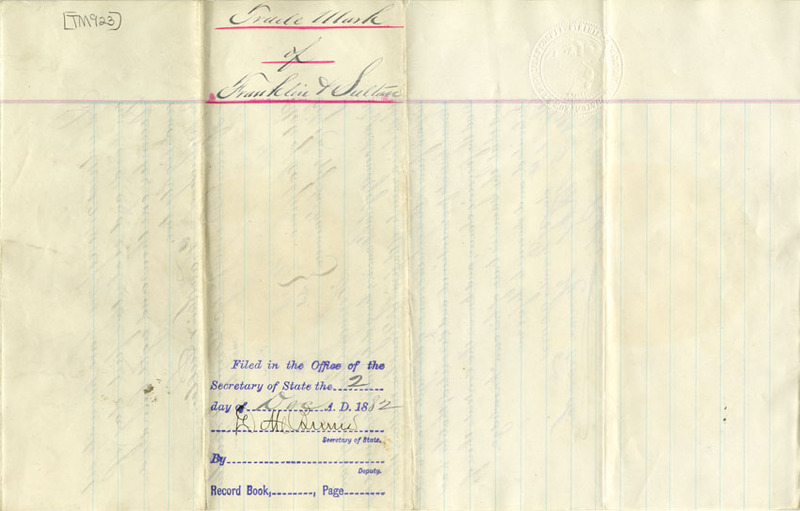 [TM923]
Trade Mark
of
Franklin & Sultan
Filed in the Office of the
Secretary of State the 2
day of Dec A. D. 1882
D M Burns
Secretary of State.
By
Deputy.
Record Book, , Page